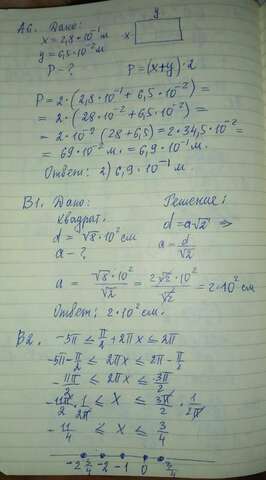 А6. Дано:
x = 2,8·10⁻¹ м
y = 6,5·10⁻² м
y
x
P - ?
P = (x+y)·2
P = 2·(2,8·10⁻¹ + 6,5·10⁻²) =
= 2·(28·10⁻² + 6,5·10⁻²) =
= 2·10⁻²(28+6,5) = 2·34,5·10⁻² =
= 69·10⁻² м. = 6,9·10⁻¹ м.
Ответ: 2) 6,9·10⁻¹ м.
B1. Дано:
Решение:
Квадрат.
d = a√2 ⇒
d = √8·10² см
a = d/√2
a - ?
a = √8·10²/√2 = 2√2·10²/√2 = 2·10² см
Ответ: 2·10² см.
B2. -5π ≤ π/2 + 2πx ≤ 2π
-5π - π/2 ≤ 2πx ≤ 2π - π/2
-11π/2 ≤ 2πx ≤ 3π/2
-11π/2 · 1/2π ≤ x ≤ 3π/2 · 1/2π
-11/4 ≤ x ≤ 3/4
-2 3/4 -2 -1 0 3/4